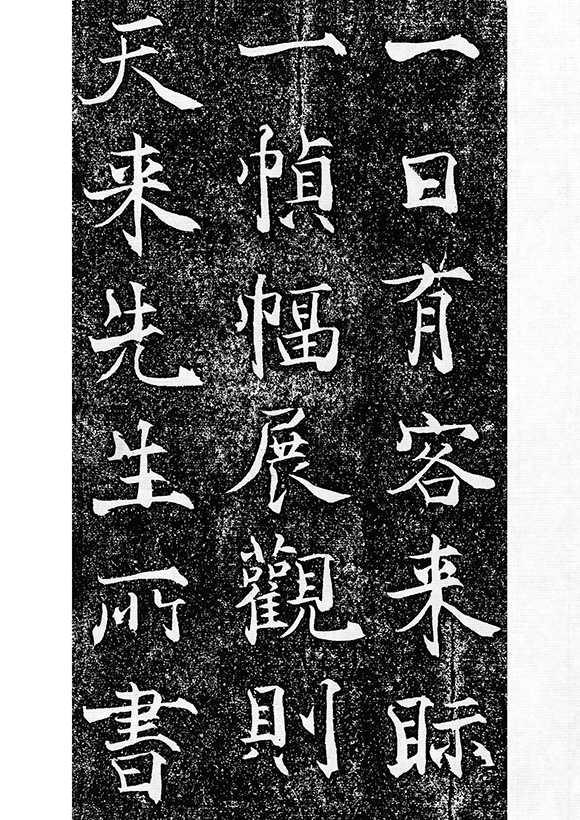 一日有客来眎
一幀幅展觀則
天来先生所書